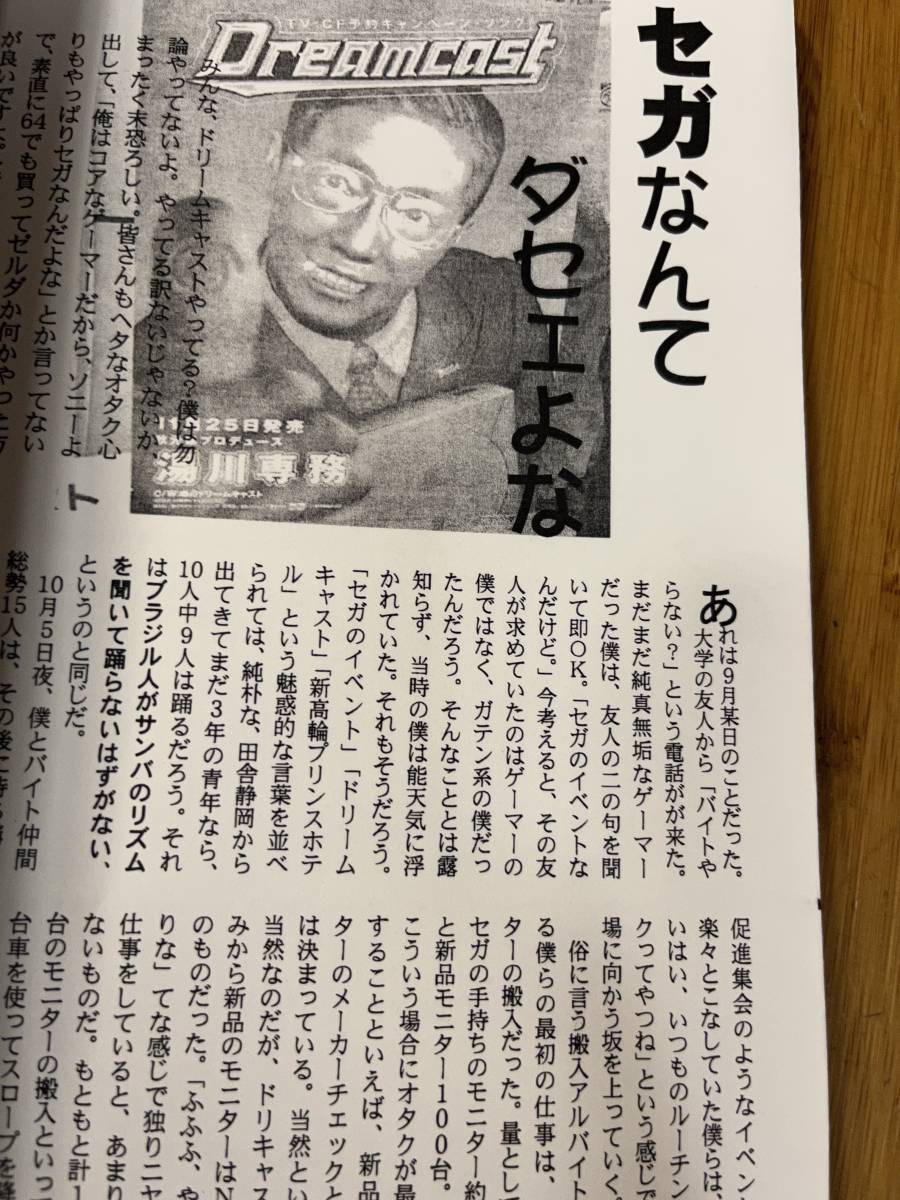 セガなんて
ダセェよな
TV-CF予約キャンペーン・ソング
Dreamcast
11月25日発売
プロデュース
湯川専務
みんな、ドリームキャストやってる？僕は勿
論やってないよ。やってる訳ないじゃないか、
まったく末恐ろしい。皆さんもヘタなオタク心
出して、「俺はコアなゲーマーだから、ソニーよ
りもやっぱりセガなんだよな」とか言ってない
で、素直に64でも買ってゼルダか何かやった方
が良いですよ。
ト
あれは9月某日のことだった。
大学の友人から「バイトや
らない？」という電話がが来た。
まだまだ純真無垢なゲーマー
だった僕は、友人の二の句を聞
いて即OK。「セガのイベントな
んだけど。」今考えると、その友
人が求めていたのはゲーマーの
僕ではなく、ガテン系の僕だっ
たんだろう。そんなこととは露
知らず、当時の僕は能天気に浮
かれていた。それもそうだろう。
「セガのイベント」「ドリーム
キャスト」「新高輪プリンスホテ
ル」という魅惑的な言葉を並べ
られては、純朴な、田舎静岡から
出てきてまだ3年の青年なら、
10人中9人は踊るだろう。それ
はブラジル人がサンバのリズム
を聞いて踊らないはずがない、
というのと同じだ。
10月5日夜、僕とバイト仲間
総勢15人は、その後に待
促進集会のようなイベン
楽々とこなしていた僕らは、
いはい、いつものルーチン
クってやつね」という感じで
場に向かう坂を上っていく。
俗に言う搬入アルバイト
る僕らの最初の仕事は、
ターの搬入だった。量として
セガの手持ちのモニター約
と新品モニター100台。
こういう場合にオタクが最
することといえば、新品
ターのメーカーチェックと
は決まっている。当然とい
当然なのだが、ドリキャス
みから新品のモニターはN
のものだった。「ふふふ、や
りな」てな感じで独りニヤ
仕事をしていると、あまり
ないものだ。もともと計1
台のモニターの搬入といっ
台車を使ってスロープを